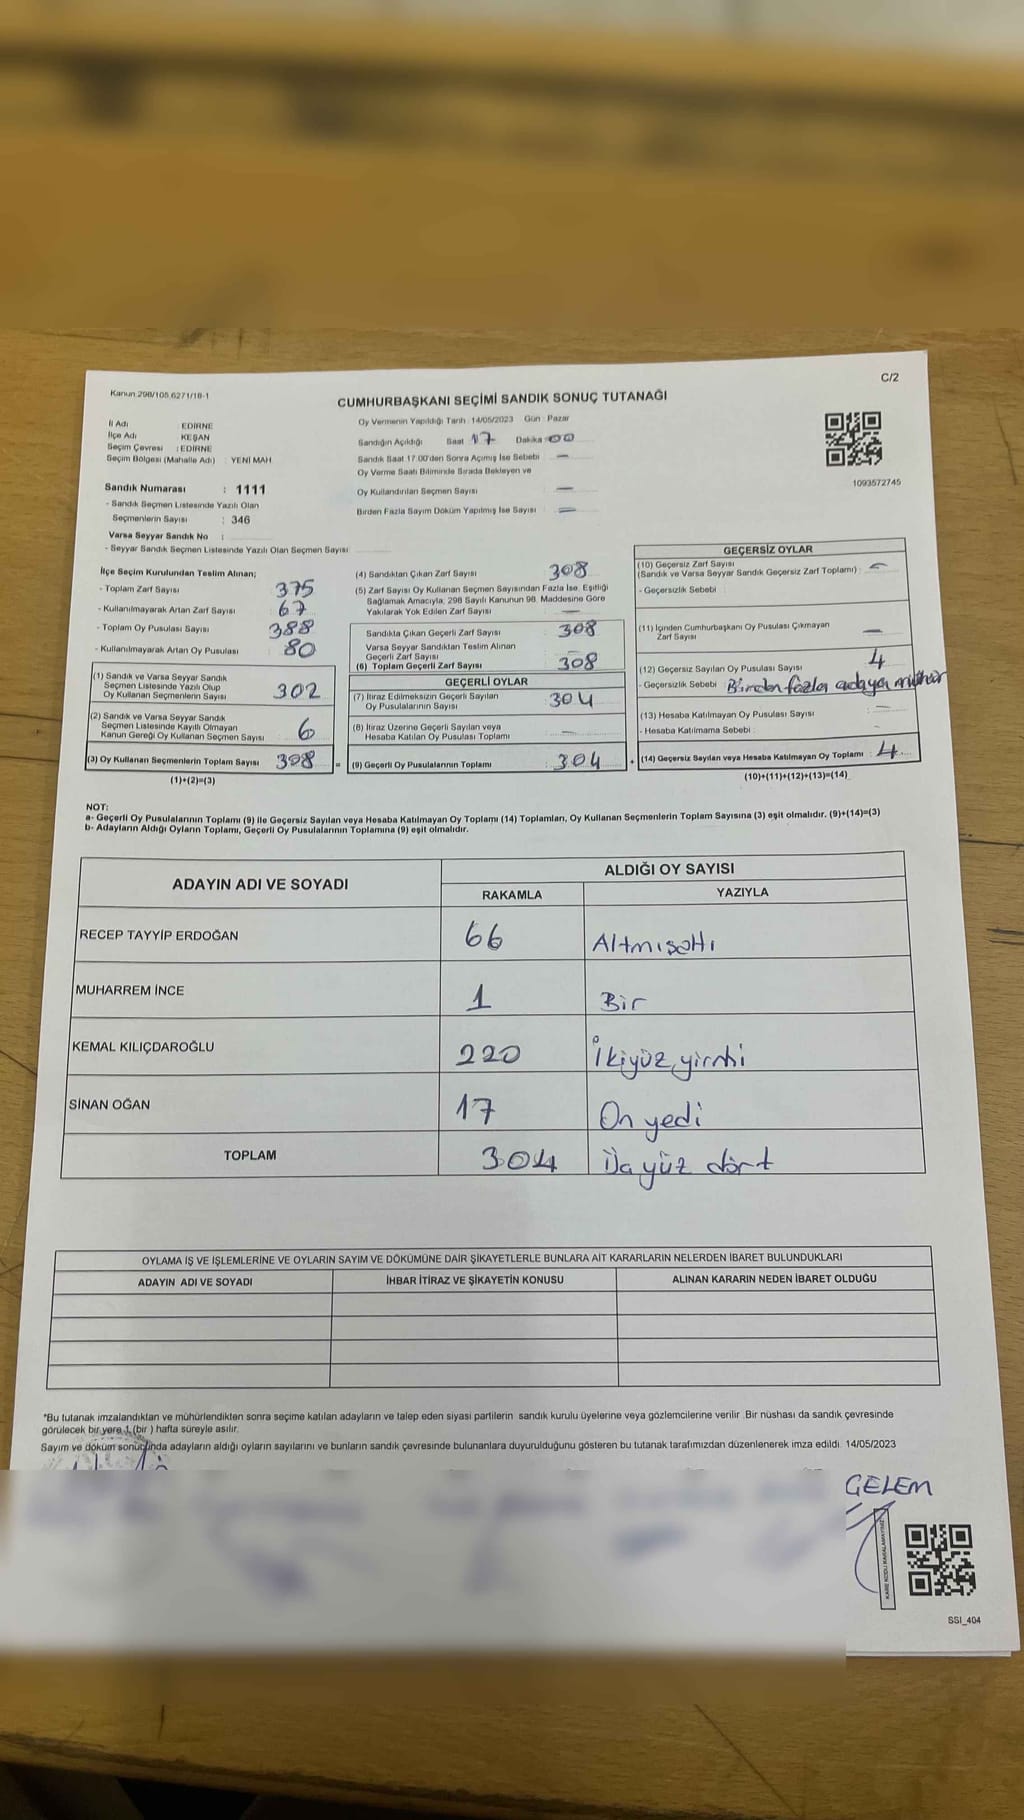 C/2
Kanun:298/105,6271/18-1
CUMHURBAŞKANI SEÇİMİ SANDIK SONUÇ TUTANAĞI
İl Adı : EDİRNE
İlçe Adı : KEŞAN
Seçim Çevresi : EDİRNE
Seçim Bölgesi (Mahalle Adı) : YENİ MAH
Sandık Numarası : 1111
- Sandık Seçmen Listesinde Yazılı Olan
Seçmenlerin Sayısı : 346
Varsa Seyyar Sandık No :
- Seyyar Sandık Seçmen Listesinde Yazılı Olan Seçmen Sayısı
Oy Vermenin Yapıldığı Tarih : 14/05/2023 Gün : Pazar
Sandığın Açıldığı Saat 17 Dakika 00
Sandık Saat 17.00'den Sonra Açımış İse Sebebi —
Oy Verme Saati Bitiminde Sırada Bekleyen ve
Oy Kullandırılan Seçmen Sayısı —
Birden Fazla Sayım Döküm Yapılmış İse Sayısı
1093572745
İlçe Seçim Kurulundan Teslim Alınan;
- Toplam Zarf Sayısı 375
- Kullanılmayarak Artan Zarf Sayısı 67
- Toplam Oy Pusulası Sayısı 388
- Kullanılmayarak Artan Oy Pusulası 80
(1) Sandık ve Varsa Seyyar Sandık
Seçmen Listesinde Yazılı Olup
Oy Kullanan Seçmenlerin Sayısı 302
(2) Sandık ve Varsa Seyyar Sandık
Seçmen Listesinde Kayıtlı Olmayan
Kanun Gereği Oy Kullanan Seçmen Sayısı 6
(3) Oy Kullanan Seçmenlerin Toplam Sayısı 308
(1)+(2)=(3)
(4) Sandıktan Çıkan Zarf Sayısı 308
(5) Zarf Sayısı Oy Kullanan Seçmen Sayısından Fazla İse, Eşitliği
Sağlamak Amacıyla, 298 Sayılı Kanunun 98. Maddesine Göre
Yakılarak Yok Edilen Zarf Sayısı —
Sandıkta Çıkan Geçerli Zarf Sayısı 308
Varsa Seyyar Sandıktan Teslim Alınan
Geçerli Zarf Sayısı
(6) Toplam Geçerli Zarf Sayısı 308
GEÇERLİ OYLAR
(7) İtiraz Edilmeksizin Geçerli Sayılan
Oy Pusulalarının Sayısı 304
(8) İtiraz Üzerine Geçerli Sayılan veya
Hesaba Katılan Oy Pusulası Toplamı —
= (9) Geçerli Oy Pusulalarının Toplamı : 304 +
GEÇERSİZ OYLAR
(10) Geçersiz Zarf Sayısı
(Sandık ve Varsa Seyyar Sandık Geçersiz Zarf Toplamı) : —
- Geçersizlik Sebebi
(11) İçinden Cumhurbaşkanı Oy Pusulası Çıkmayan
Zarf Sayısı —
(12) Geçersiz Sayılan Oy Pusulası Sayısı 4
- Geçersizlik Sebebi Birden fazla adaya mühür
(13) Hesaba Katılmayan Oy Pusulası Sayısı —
- Hesaba Katılmama Sebebi : —
(14) Geçersiz Sayılan veya Hesaba Katılmayan Oy Toplamı : 4
(10)+(11)+(12)+(13)=(14)
NOT:
a- Geçerli Oy Pusulalarının Toplamı (9) ile Geçersiz Sayılan veya Hesaba Katılmayan Oy Toplamı (14) Toplamları, Oy Kullanan Seçmenlerin Toplam Sayısına (3) eşit olmalıdır. (9)+(14)=(3)
b- Adayların Aldığı Oyların Toplamı, Geçerli Oy Pusulalarının Toplamına (9) eşit olmalıdır.
ADAYIN ADI VE SOYADI ALDIĞI OY SAYISI
RAKAMLA YAZIYLA
RECEP TAYYİP ERDOĞAN 66 Altmışaltı
MUHARREM İNCE 1 Bir
KEMAL KILIÇDAROĞLU 220 İkiyüz yirmi
SİNAN OĞAN 17 On yedi
TOPLAM 304 Üç yüz dört
OYLAMA İŞ VE İŞLEMLERİNE VE OYLARIN SAYIM VE DÖKÜMÜNE DAİR ŞİKAYETLERLE BUNLARA AİT KARARLARIN NELERDEN İBARET BULUNDUKLARI
ADAYIN ADI VE SOYADI İHBAR İTİRAZ VE ŞİKAYETİN KONUSU ALINAN KARARIN NEDEN İBARET OLDUĞU
*Bu tutanak imzalandıktan ve mühürlendikten sonra seçime katılan adayların ve talep eden siyasi partilerin sandık kurulu üyelerine veya gözlemcilerine verilir. Bir nüshası da sandık çevresinde
görülecek bir yere 1 (bir ) hafta süreyle asılır.
Sayım ve döküm sonucunda adayların aldığı oyların sayılarını ve bunların sandık çevresinde bulunanlara duyurulduğunu gösteren bu tutanak tarafımızdan düzenlenerek imza edildi. 14/05/2023
GELEM
KARE KODU KARALAMAYINIZ
SSI_404